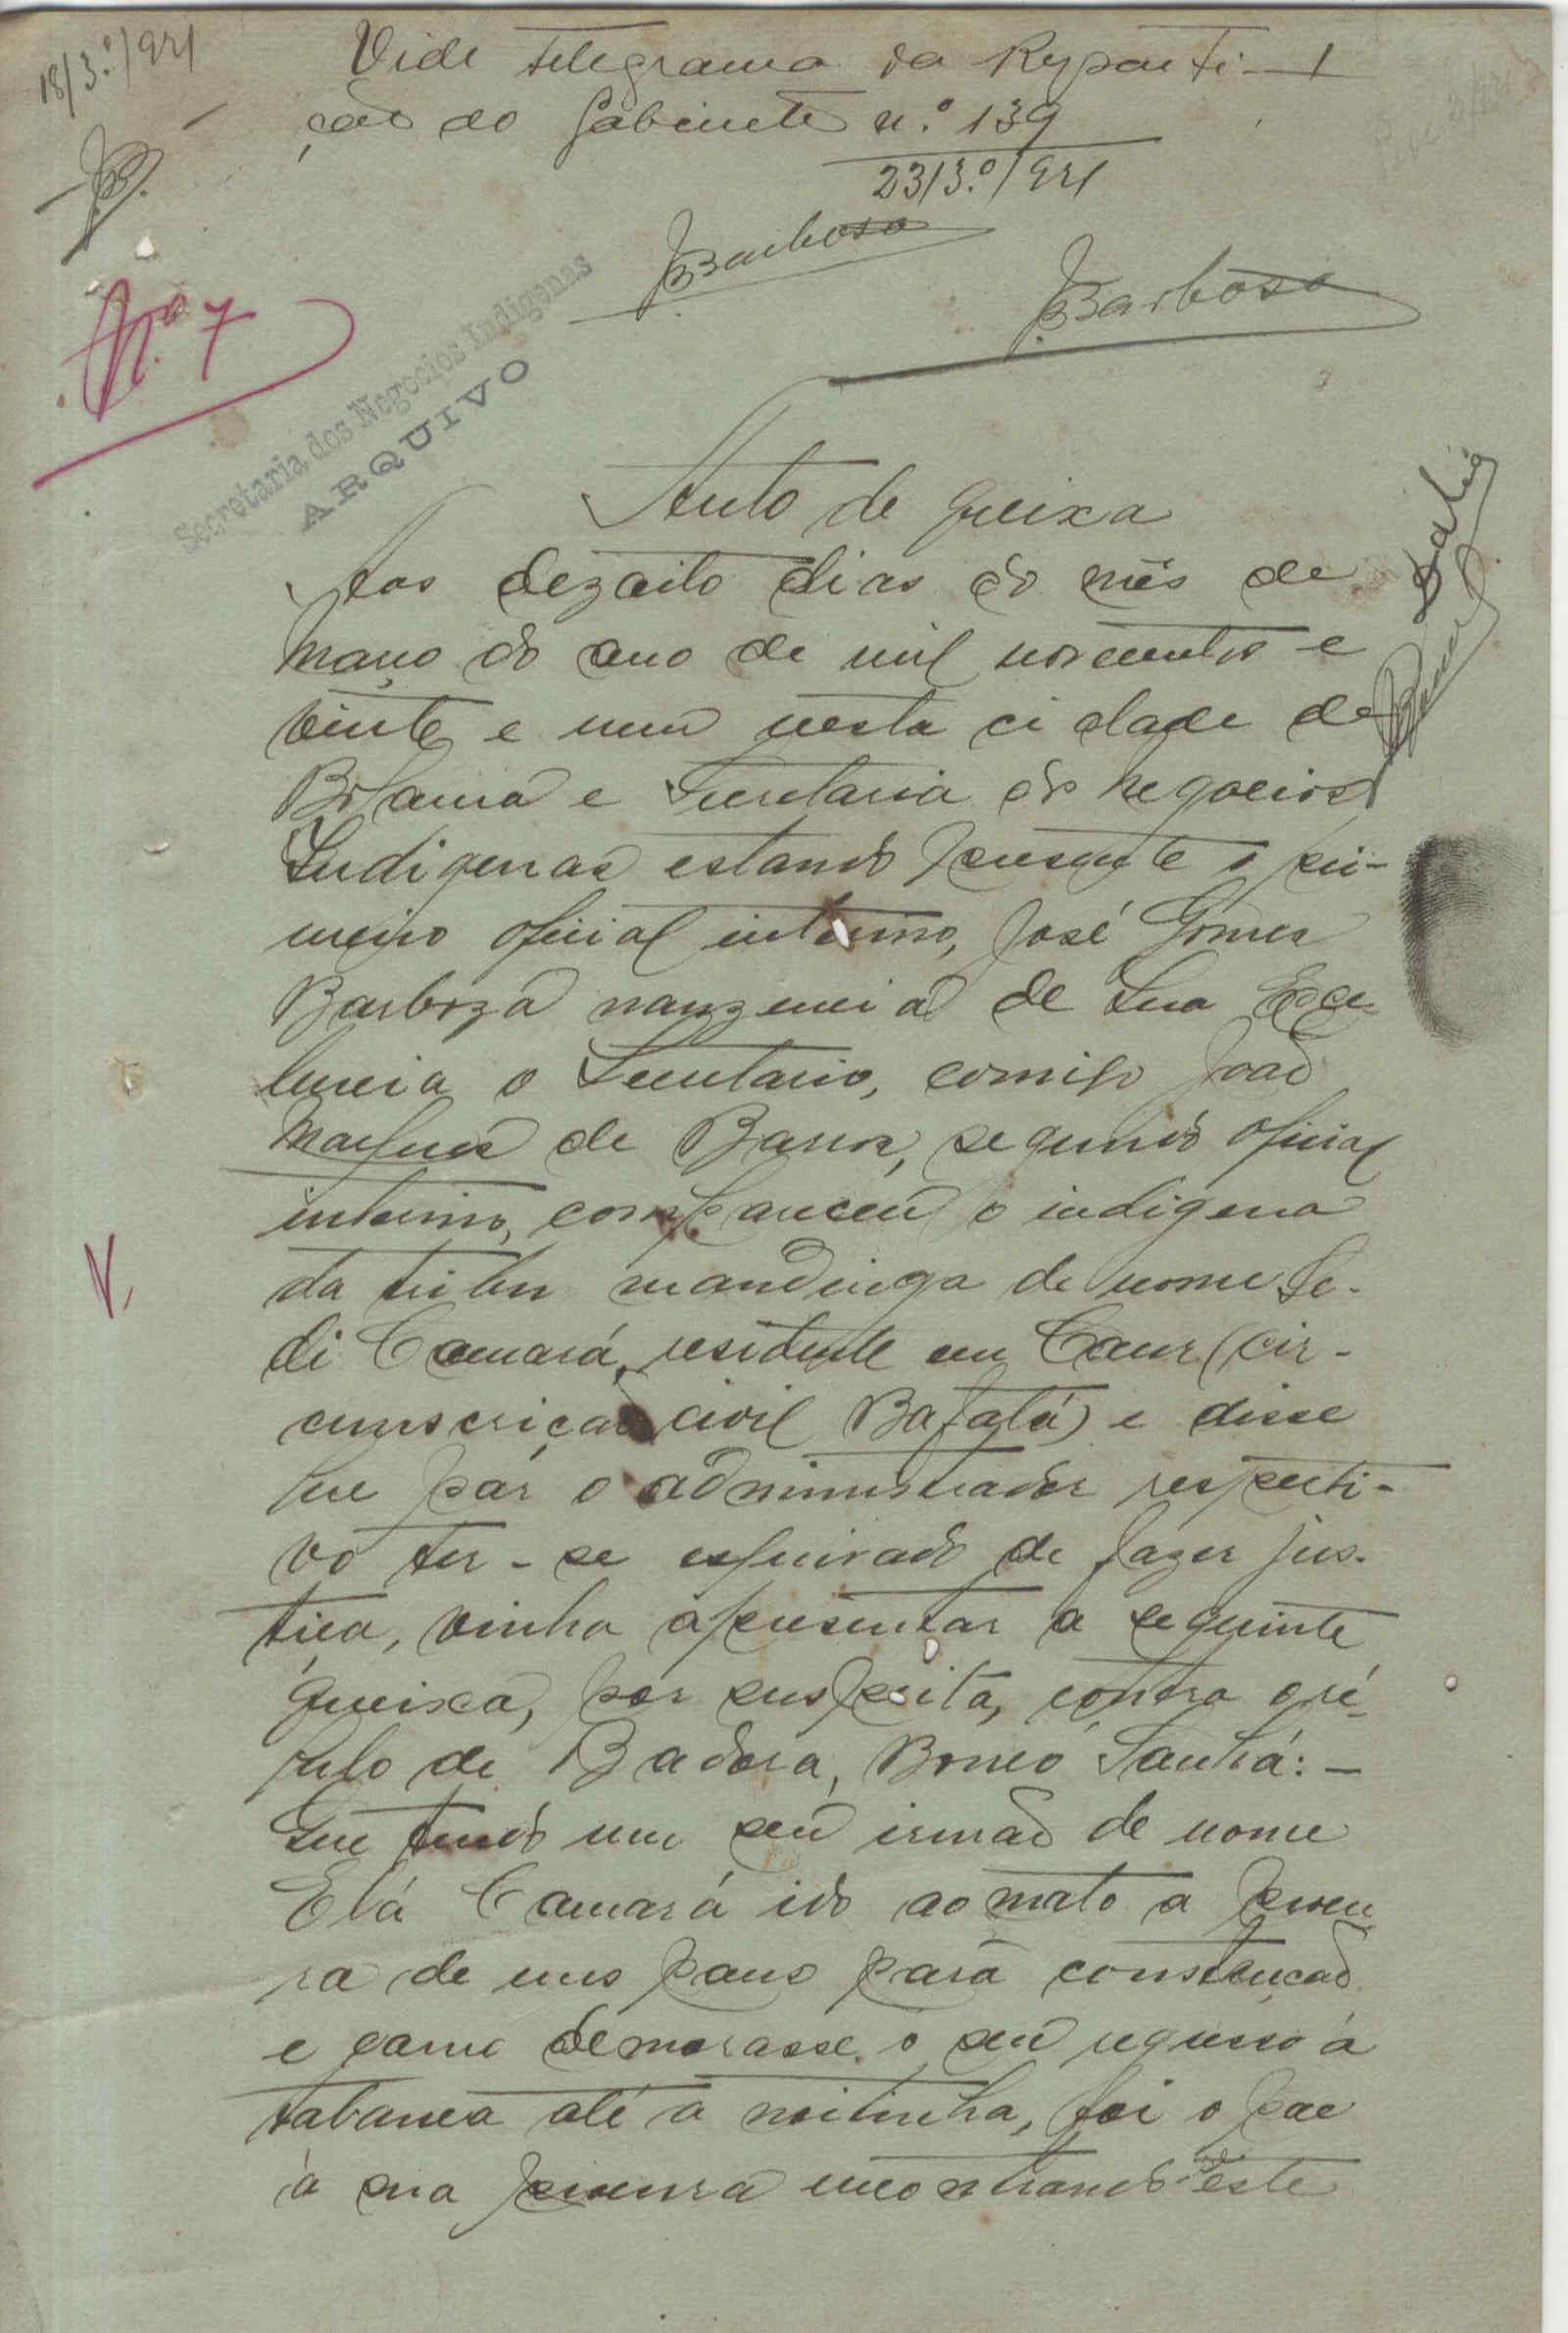 18/3.º/921
Vide telegrama da Reparti-
ção do Gabinete n.º 139
23/3.º/921
JBarbosa
JBarbosa
N.º 7
Secretaria dos Negocios Indigenas
ARQUIVO
Auto de queixa
Aos dezoito dias do mês de
Março do ano de mil novecentos e
vinte e um nesta cidade de
Bolama e Secretaria dos Negocios
Indigenas estando presente o pri-
meiro oficial interino, José Gomes
Barboza na ausencia de Sua Exce-
lencia o Secretario, comigo João
Marques de Barros, segundo oficial
interino, compareceu o indigena
da tribu mandinga de nome Se-
di Camará, residente em Caur (cir-
cunscrição civil Bafatá) e disse
que por o administrador respecti-
vo ter-se esquivado de fazer jus-
tiça, vinha apresentar a seguinte
queixa, por suspeita, contra o ré-
gulo de Badora, Bonco Sanhá: -
Que tendo um seu irmão de nome
Elá Camará ido ao mato a procu-
ra de uns paus para construção
e como demorasse o seu regresso á
tabanca até a noitinha, foi o pae
á sua procura encontrando este
V.